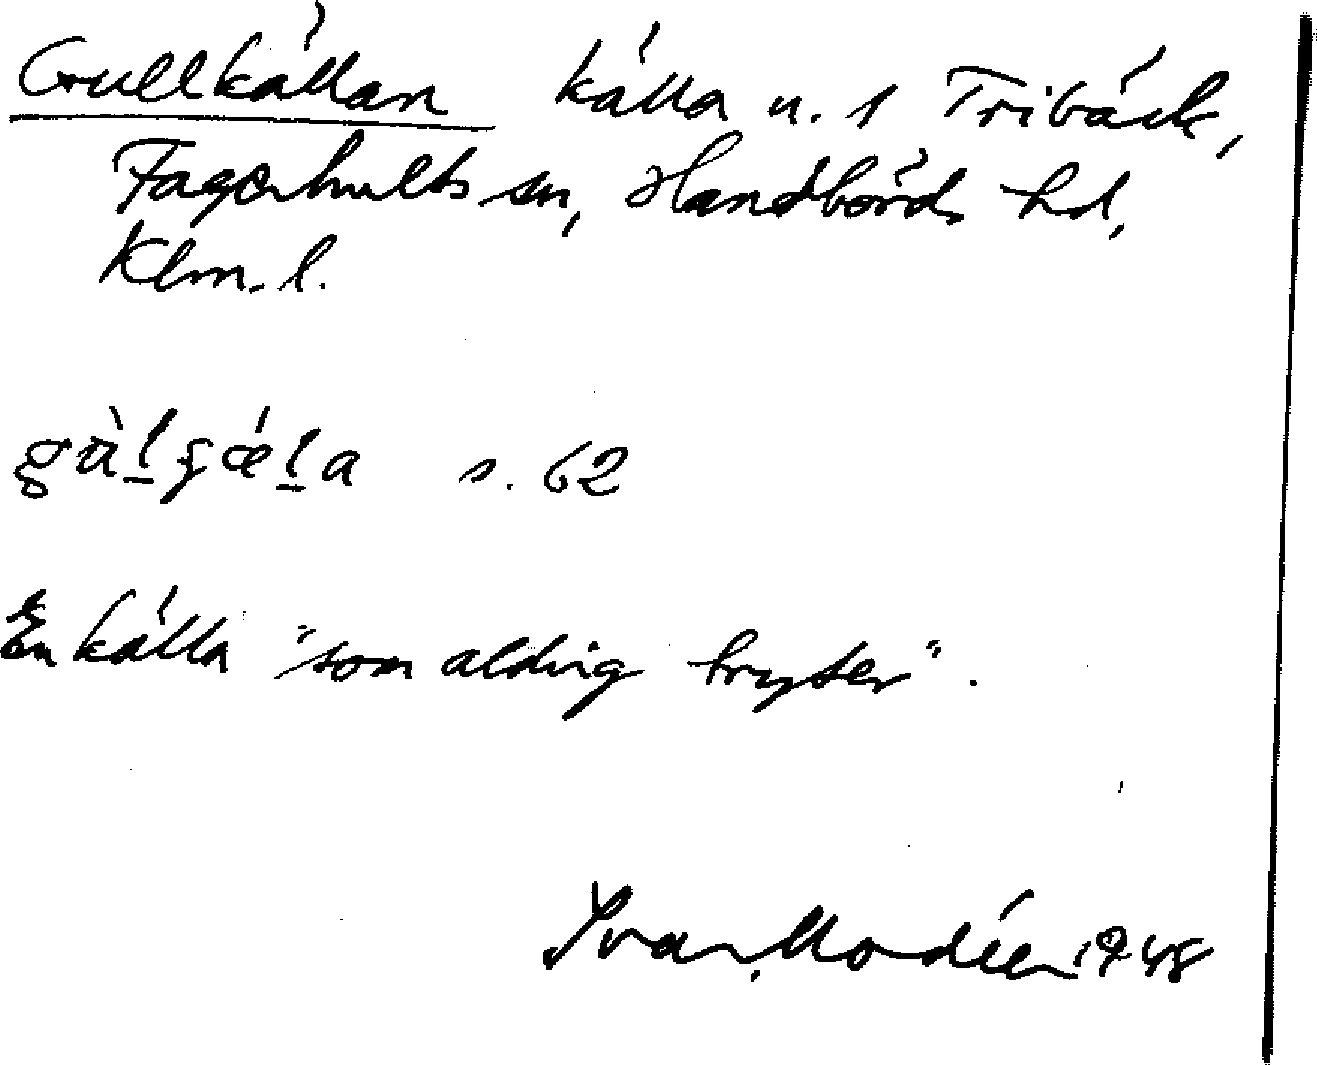 Gullkällan källa n. 1 Tribäck,
Fagerhults sn, Handbörds hd,
Klm. l.
gàl̠ɕæ̀l̠a s. 62
En källa "som aldrig tryter".
Ivar Modéer 1948